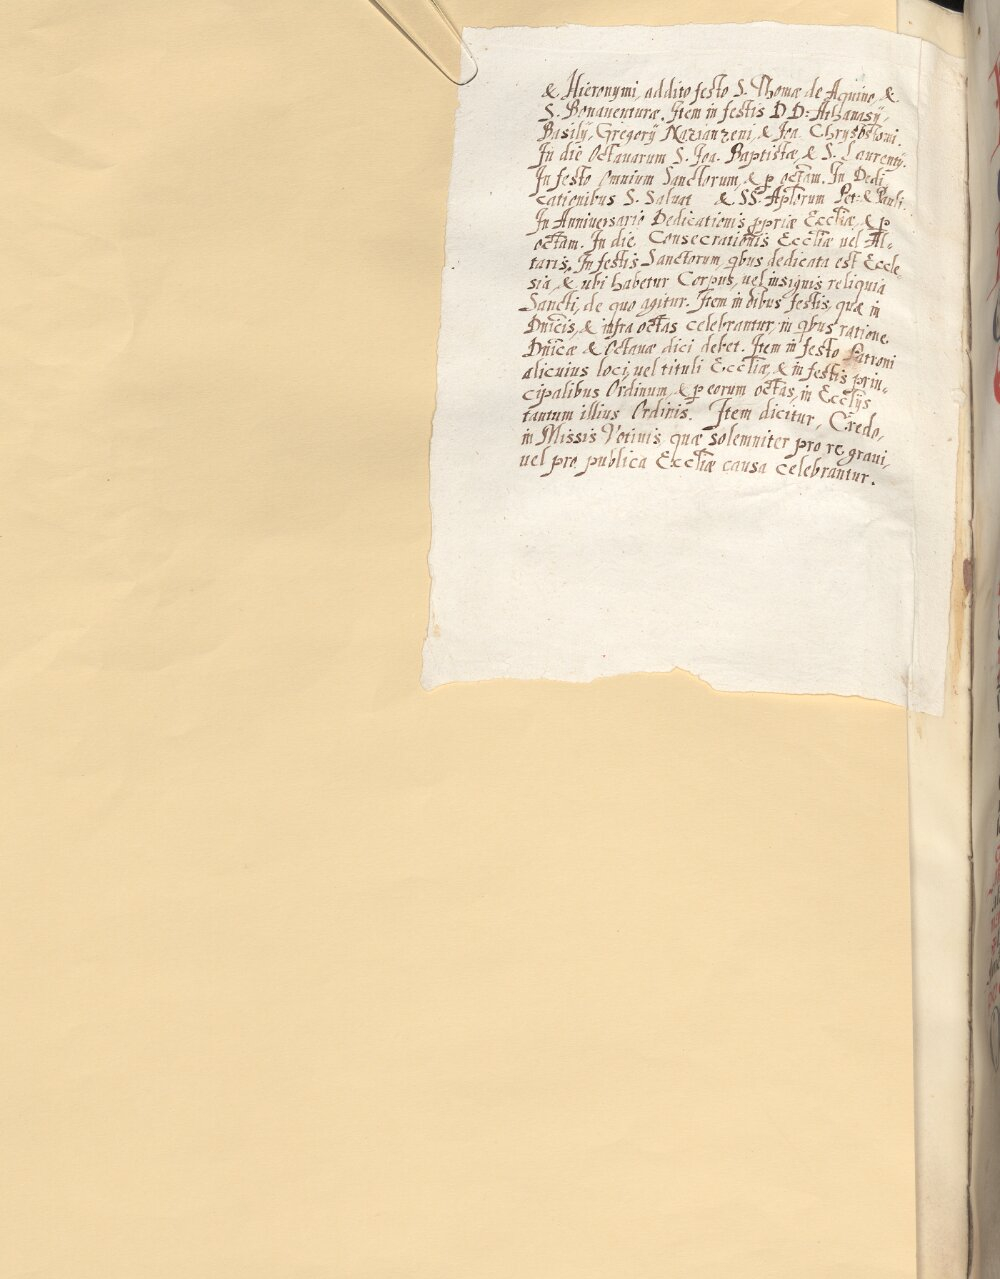 & Hieronymi, addito festo S. Thomæ de Aquino, &
S. Bonauenturæ. Item in festis DD: Athanasÿ,
Basilÿ, Gregorÿ Nazianzeni, & Ioa. Chrysostomi.
In die Octauarum S. Ioa. Baptistæ, & S. Laurentÿ.
In festo Omnium Sanctorum, & ꝑ octam. In Dedi
cationibus S. Saluat & SS. Aplorum Pet: & Pauli.
In Anniuersario Dedicationis ꝓpriæ Eccliæ, & ꝑ
octam. In die Consecrationis Eccliæ uel Al-
taris. In festis Sanctorum, qbus dedicata est Eccle
sia, & ubi habetur Corpus, uel insignis reliquia
Sancti, de quo agitur. Item in oibus festis, quæ in
Dnicis, & infra octas celebrantur, in qbus ratione
Dnicæ & Octauæ dici debet. Item in festo Patroni
alicuius loci, uel tituli Eccliæ, & in festis prin-
cipalibus Ordinum, & ꝑ eorum octas, in Ecclÿs
tantum illius Ordinis. Item dicitur, Credo,
in Missis Votiuis, quæ solemniter pro re graui,
uel pro publica Eccliæ causa celebrantur.